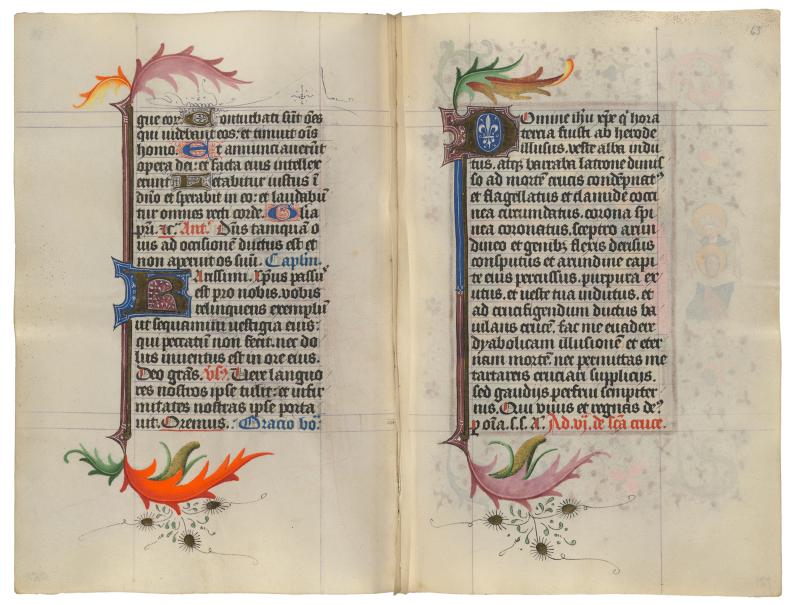 gue cor. Conturbati sūt oēs
qui videbant eos: et timuit oīs
homo. Et annunciaverūt
opera dei: et facta eius intellex
erunt Letabitur iustus ī
dn̄o et sperabit in eo: et laudabū
tur omnes recti corde. Glīa
pri. ic̄. Ant. Dn̄s tamquā o
uis ad occisionē ductus est et
non aperuit os suū. Caplm̄.
Karissimi. xp̄us passu
est pro nobis. vobis
relinquens exemplū
ut sequamini vestigia eius:
qui peccatū non fecit. nec do
lus inventus est in ore eius.
Deo grās. Vere languo
res nostros ipse tulit: et infir
mitates nostras ipse porta
vit. Oremus. Oracio bō.
63
Domine ihū xp̄e q̄ hora
tercia fuisti ab herode
illusus. veste alba indu
tus. atq; barraba latrone dimis
so ad mortē crucis condēpnat⁹
et flagellatus et clamide cocci
nea circumdatus. corona spi
nea coronatus. sceptro arun
dineo et genib; flexis derisus
consputus et arundine capi
te eius percussus. purpura ex
utus. et veste tua indutus. et
ad crucifigendum ductus ba
iulans crucē. fac me evadere
dyabolicam illusionē et eter
nam mortē. nec permittas me
tartareis cruciari suppliciis.
sed gaudiis perfrui sempiter
nis. Qui vivis et regnas de⁹
p oīa. s. s. A. Ad. vj. de sc̄a cruce.